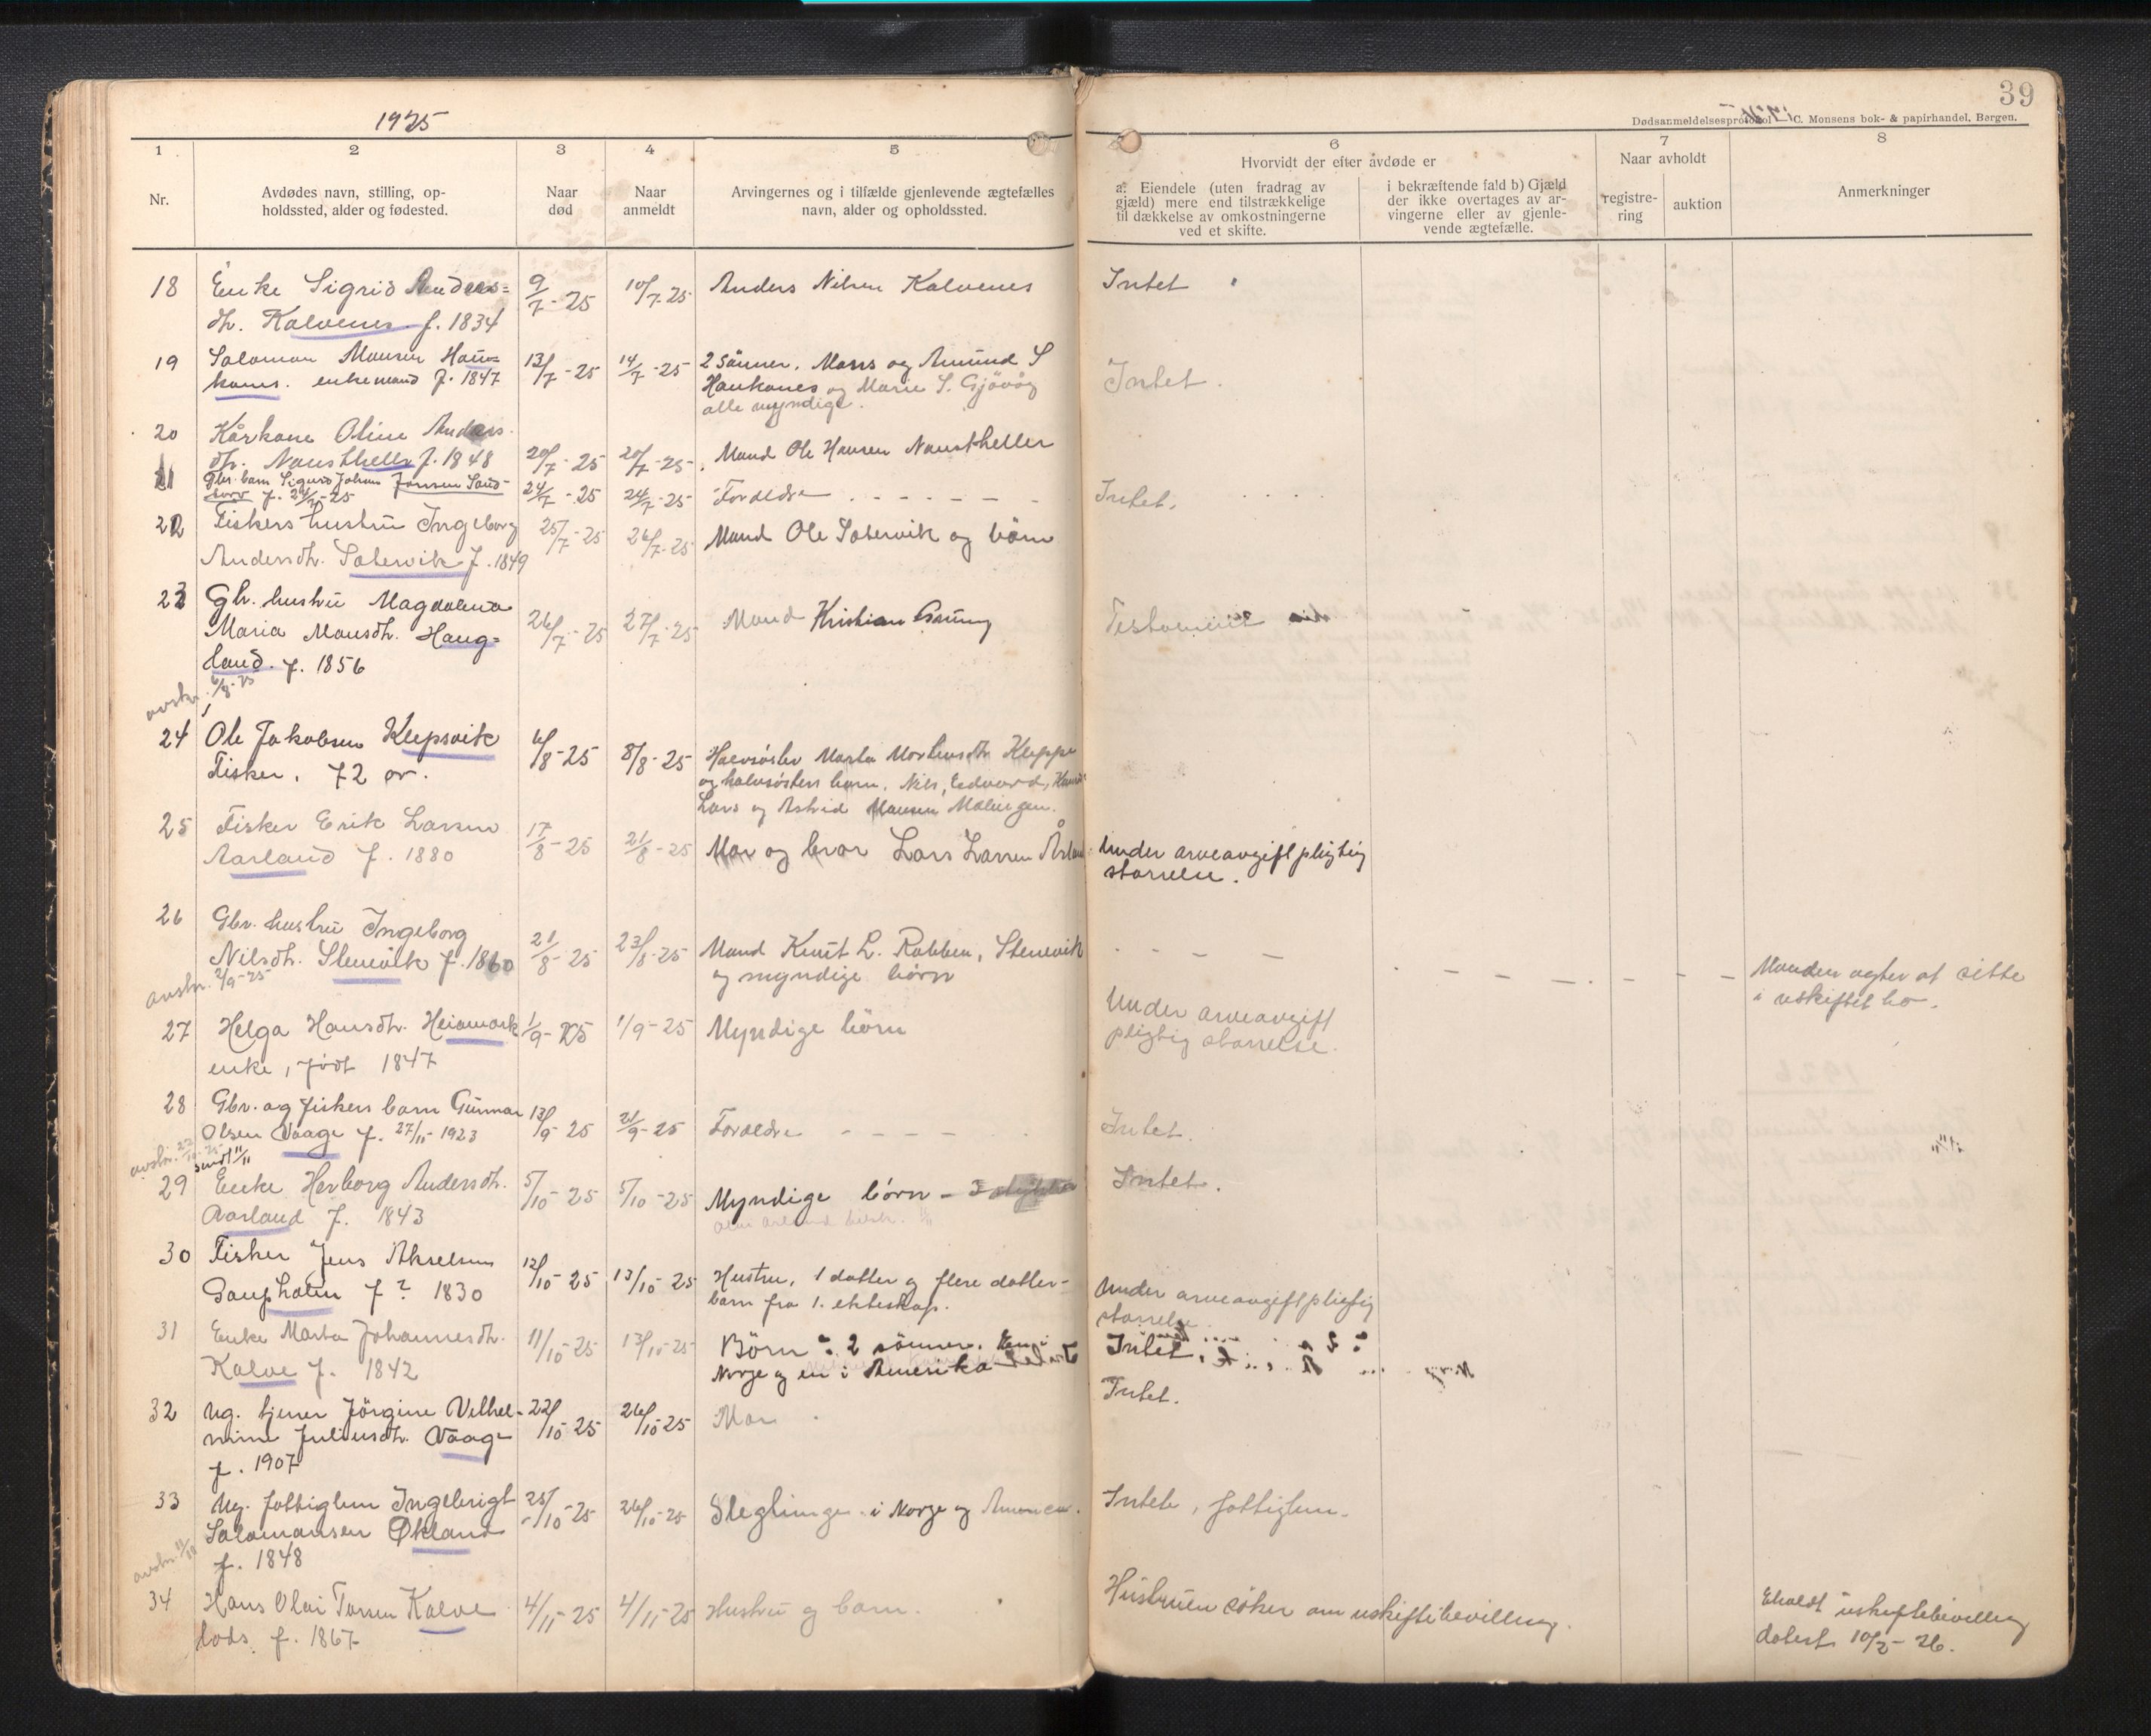 1925
39
Dødsanmeldelsesprotokol C. Monsens bok- & papirhandel, Bergen.
1 2 3 4 5 6 7 8
Nr.
Avdødes navn, stilling, op-
holdssted, alder og fødested.
Naar
død
Naar
anmeldt
Arvingernes og i tilfælde gjenlevende ægtefælles
navn, alder og opholdssted.
Hvorvidt der efter avdøde er
a. Eiendele (uten fradrag av
gjæld) mere end tilstrækkelige
til dækkelse av omkostningerne
ved et skifte.
i bekræftende fald b) Gjæld
der ikke overtages av ar-
vingerne eller av gjenle-
vende ægtefælle.
Naar avholdt
registre-
ring
auktion
Anmerkninger
18 Enke Sigrid Anders=
dtr. Kalvenes f. 1834
9/7-25 10/7-25 Anders Nilsen Kalvenes Intet
19 Salomon Monsen Hau=
kanes. enkemand f. 1847
13/7-25 14/7-25 2 sönner. Mons og Amund S
Haukanes og Marie S. Gjövåg
alle myndige.
Intet.
20 Kårkone Oline Anders
dtr. Naustheller f. 1848
20/7-25 20/7-25. Mand Ole Hansen Naustheller
21 Gbr. barn Sigurd Johan Jansen Sand
torv f. 24/2-25
24/7-25 24/7-25 Foreldre Intet.
22 Fiskers hustru Ingeborg
Andersdtr. Solervik f. 1849
25/7-25 26/7-25 Mand Ole Solervik og börn
23 Gbr. hustru Magdalena
Maria Monsdtr. Haug=
land. f. 1856
26/7-25 27/7-25 Mand Kristian Grung Testament
avskr. 6/8-25
24 Ole Jakobsen Kleppsvik
Fisker. 72 år.
6/8-25 8/8-25 Halvsöster Marta Mortensdtr Kleppe
og halvsösters barn. Nils, Edvard,
Lars og Astrid Hansen Mölingen.
25 Fisker Erik Larsen
Aarland f. 1880
17/8-25 21/8-25 Mor og bror Lars Larsen
Under arveavgiftpligtig
störrelse.
26 Gbr. hustru Ingeborg
Nilsdtr. Stenevik f. 1860
21/8-25 23/8-25 Mand Knut L. Rabben, Stenevik
og myndige börn
Manden agter at sitte
i uskiftet bo.
avskr. 2/9-25
27 Helga Hansdtr. Heiamark
enke, födt 1847
1/9-25 1/9-25 Myndige börn
Under arveavgift
pligtig störrelse.
28 Gbr. og fiskers barn Gunnar
Olsen Vaage f. 27/11-1923
13/9-25 21/9-25 Foreldre Intet.
avskr. 22/10-25
sendt 11/11
29 Enke Herborg Andersdtr.
Aarland f. 1843
5/10-25 5/10-25 Myndige börn Intet.
30 Fisker Jens Akselsen
Gaupholm f? 1830
12/10-25 13/10-25 Hustru, 1 datter og flere datter-
barn fra 1. ekteskap.
Under arveavgiftpligtig
störrelse.
31 Enke Marta Johannesdtr.
Kalve f. 1842
11/10-25 13/10-25 Börn: 2 sönner. En i
Norge og en i Amerika
Intet.
32 Ug. tjener Jörgine Vilhel-
mine Juliusdtr. Vaage
f. 1907
22/10-25 26/10-25 Mor Intet.
33 Ug. fattiglem Ingebrigt
Salamonsen Økland
f. 1848
25/10-25 26/10-25 Slegtninge i Norge og Amerika.
Intet, fattiglem.
avskr. 11/11
34 Hans Olai Tomsen Kalve
lods f. 1867
4/11-25 4/11-25 Hustru og barn.
Hustruen söker om uskiftebevilling.
Eholdt uskiftebevilling
datert 10/2-26.